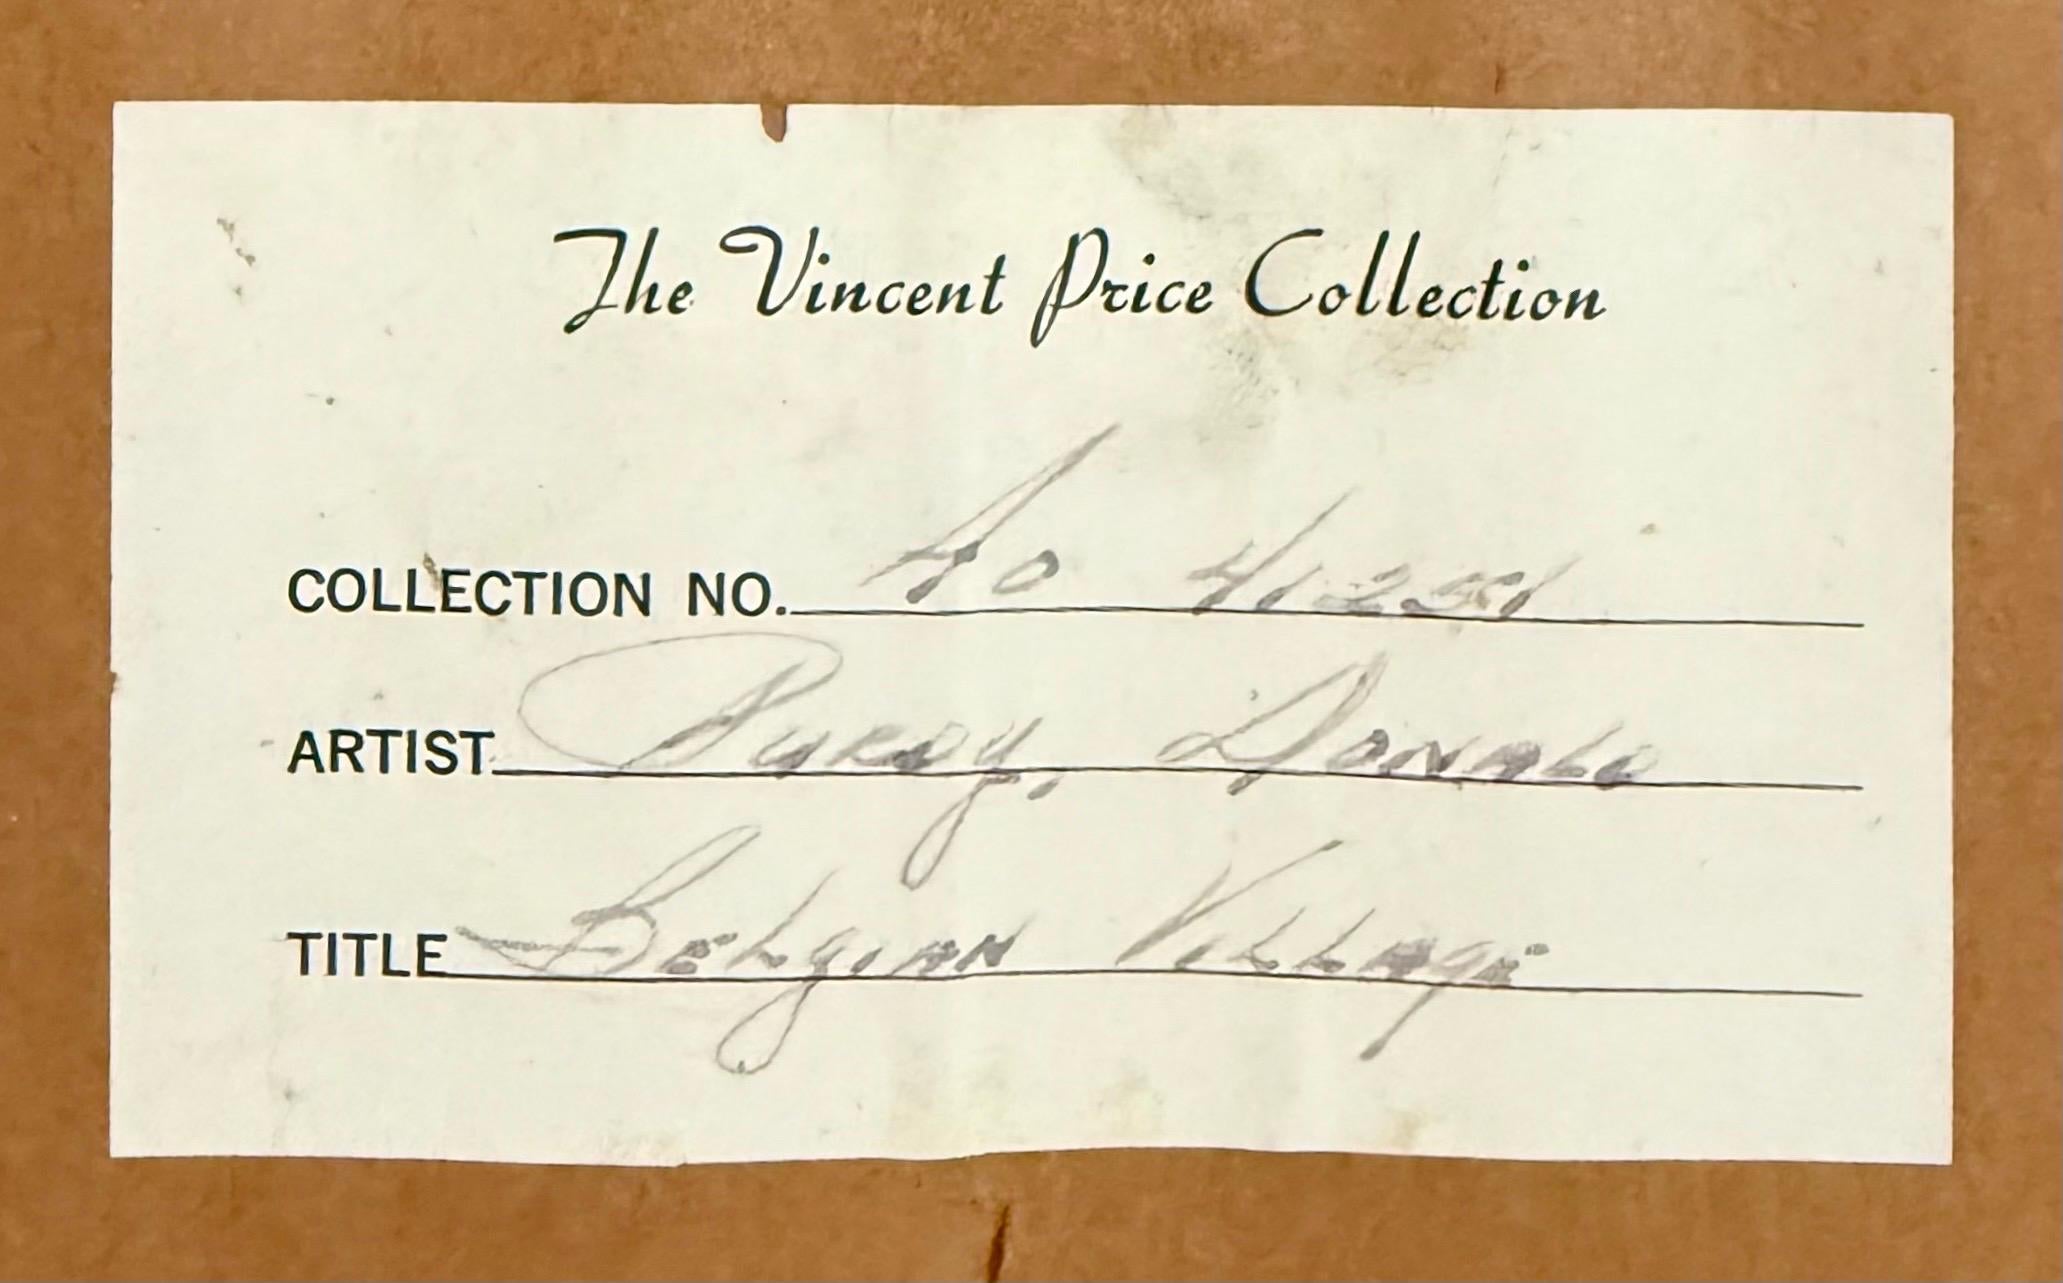 The Vincent Price Collection
COLLECTION NO. AO 41251
ARTIST Purdy, Donald
TITLE Belgian Village